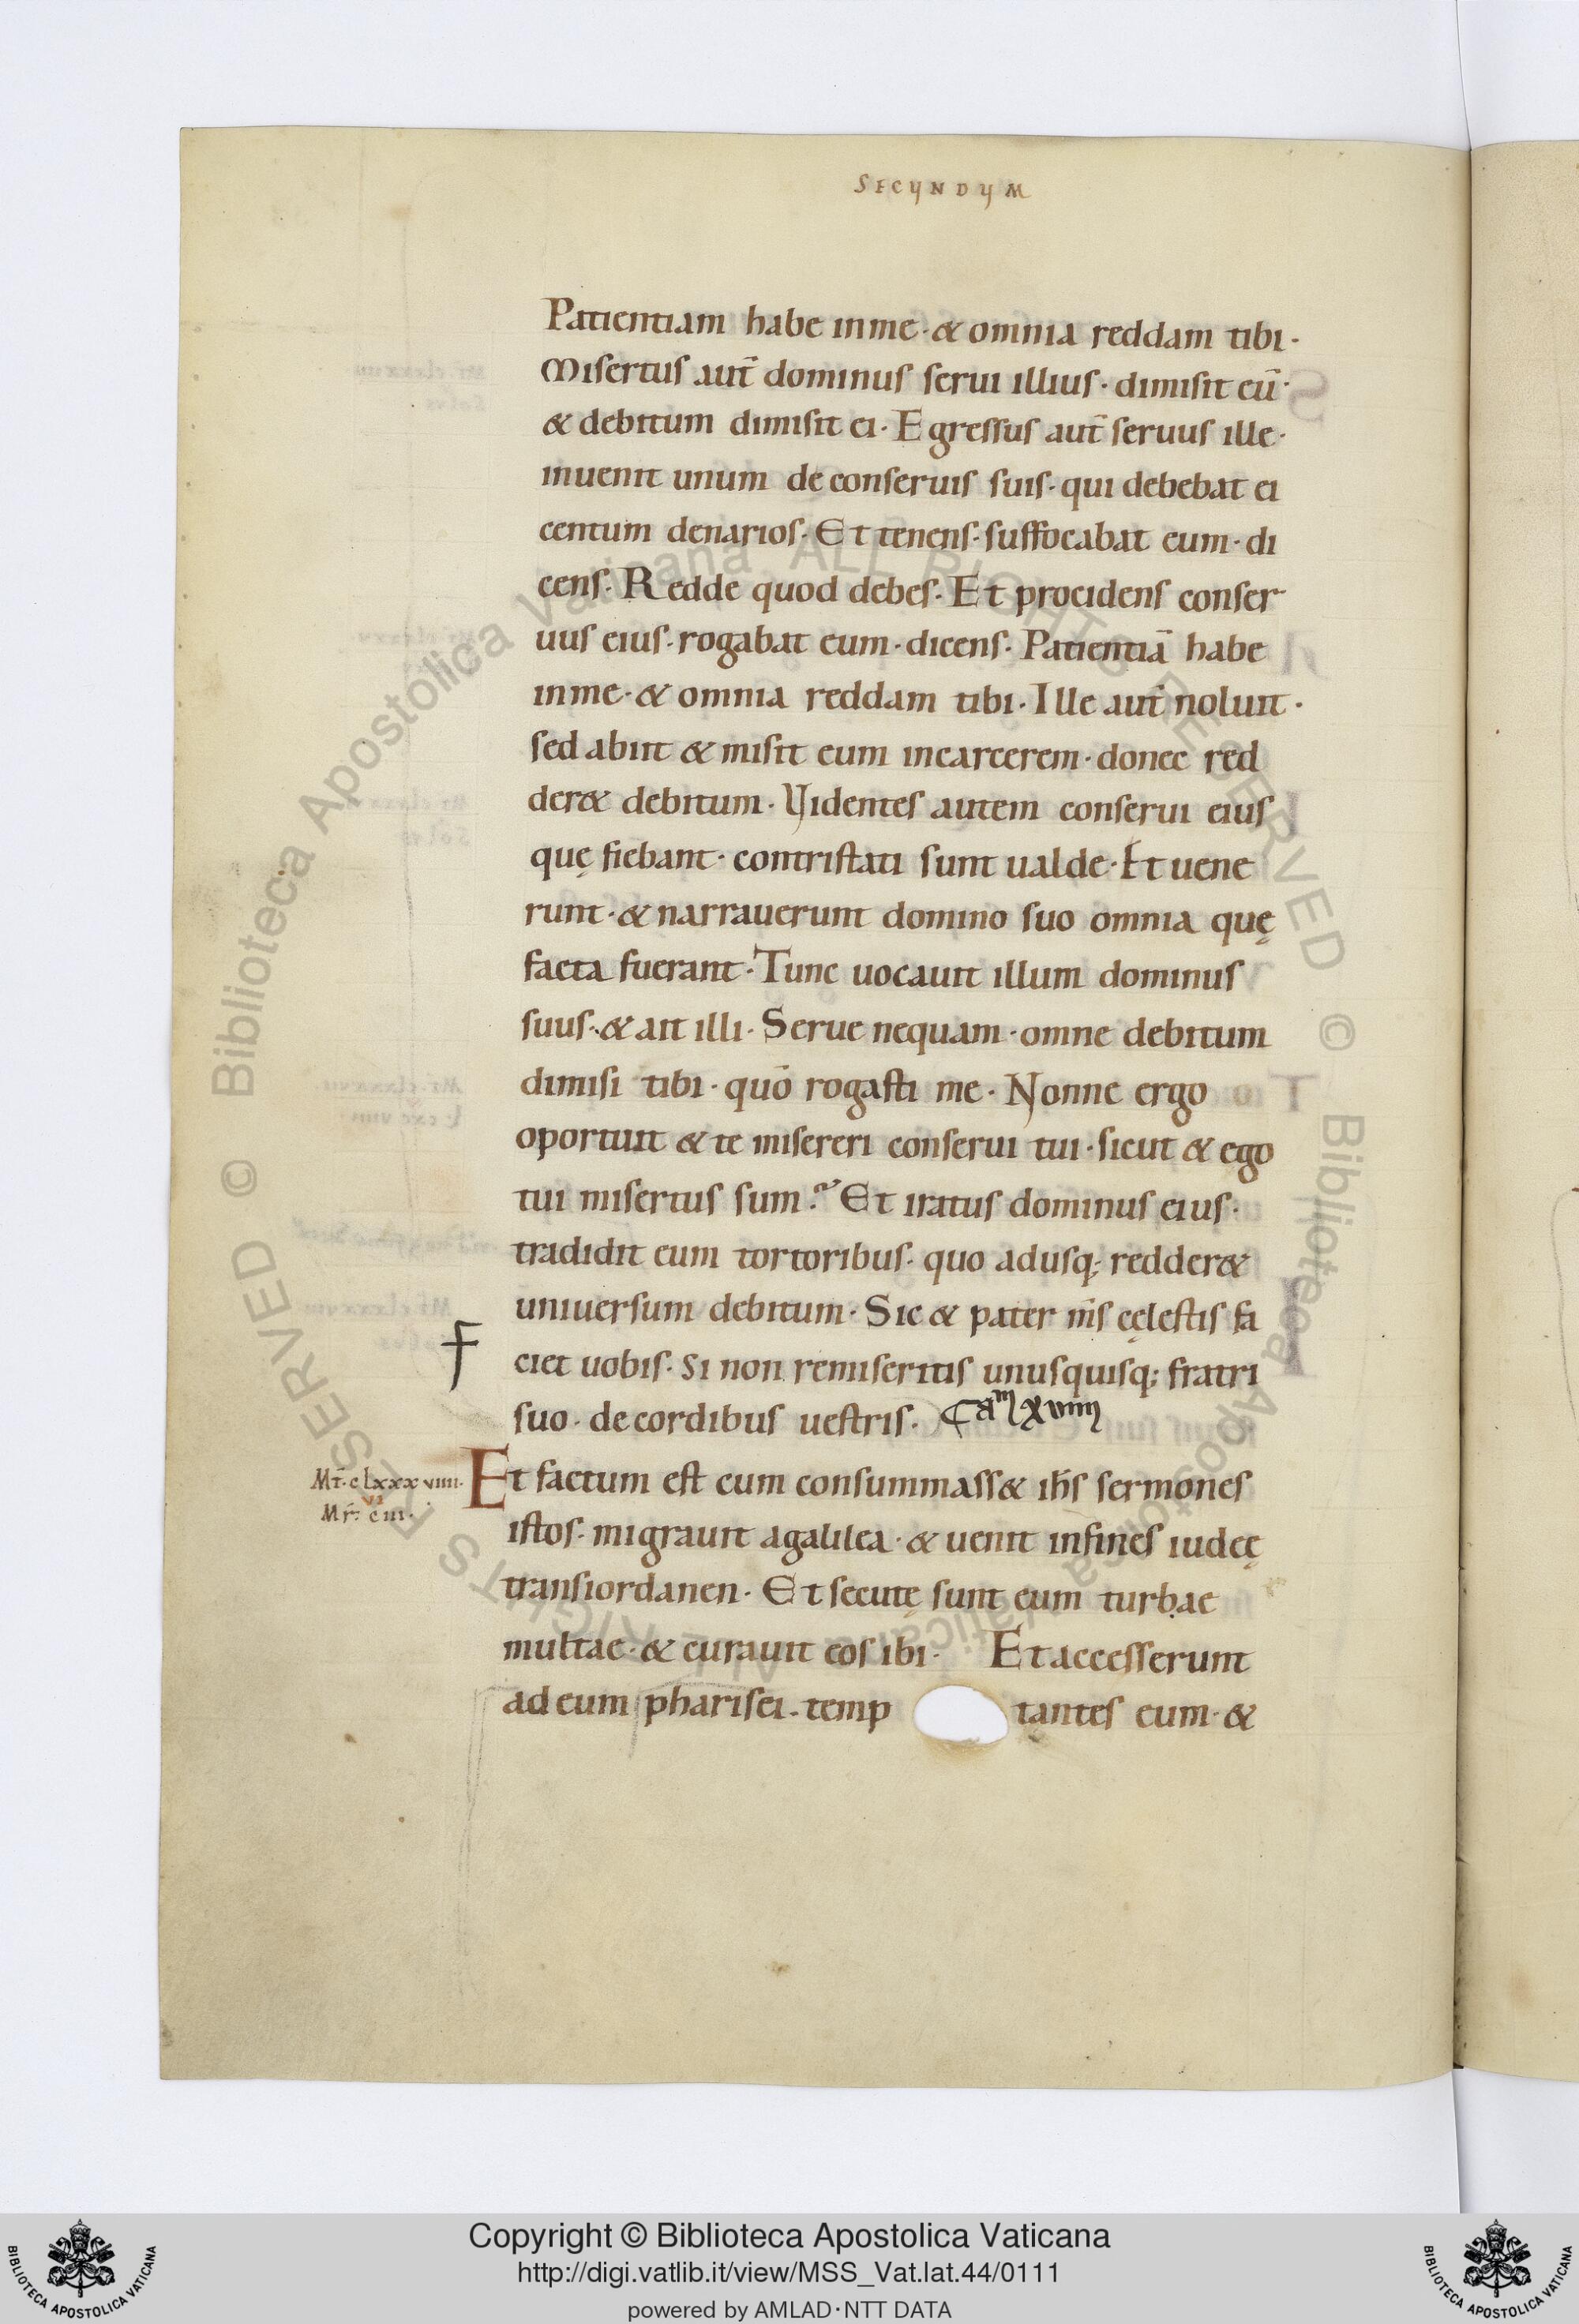 SECUNDUM
Patientiam habe in me · & omnia reddam tibi ·
Misertus aut̄ dominus serui illius · dimisit eū ·
& debitum dimisit ei · Egressus aut̄ seruus ille ·
inuenit unum de conseruis suis · qui debebat ei
centum denarios · Et tenens · suffocabat eum · di
cens · Redde quod debes · Et procidens conser
uus eius · rogabat eum · dicens · Patientiā habe
in me · & omnia reddam tibi · Ille aut̄ noluit ·
sed abiit & misit eum in carcerem · donec red
der& debitum · Videntes autem conserui eius
quę fiebant · contristati sunt ualde · Et uene
runt · & narrauerunt domino suo omnia quę
facta fuerant · Tunc uocauit illum dominus
suus · & ait illi · Serue nequam · omne debitum
dimisi tibi · quō rogasti me · Nonne ergo
oportuit & te misereri conserui tui · sicut & ego
tui misertus sum ? Et iratus dominus eius ·
tradidit eum tortoribus · quo adusq; redder&
uniuersum debitum · Sic & pater m̄s cęlestis fa
ciet uobis · si non remiseritis unusquisq; fratri
suo · de cordibus uestris · Cam xviiii
Mt̄ · clxxxviiii · Et factum est cum consummass& ih̄s sermones
Mr̄ · ciii · istos · migrauit a galilea · & uenit in fines iudeę
trans iordanen · Et secutę sunt eum turbae
multae · & curauit eos ibi · Et accesserunt
ad eum pharisei · temp tantes eum · &
Copyright © Biblioteca Apostolica Vaticana
http://digi.vatlib.it/view/MSS_Vat.lat.44/0111
powered by AMLAD · NTT DATA
BIBLIOTECA APOSTOLICA VATICANA
BIBLIOTECA APOSTOLICA VATICANA
© Biblioteca Apostolica Vaticana ALL RIGHTS RESERVED © Biblioteca Apostolica Vaticana ALL RIGHTS RESERVED